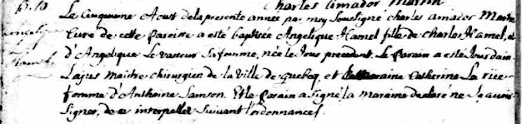 charles amador Martin
B. 10
Le Cinquieme Aoust de la presente annee par moy sousigné charles amador Martin
Curé de cette Paroisse a esté baptisée Angelique hamel fille de charles hamel, et
d'Angelique Le vasseur sa femme, née le Jour precedent. Le Parain a esté Jourdain
Lajus maitre chirurgien de la Ville de quebeq et la maraine Catherine La riue
femme d'Anthoine Samson. Et le Parain a signé la maraine declaré ne scauoir
signer, de ce interpellée suiuant l'ordonnance